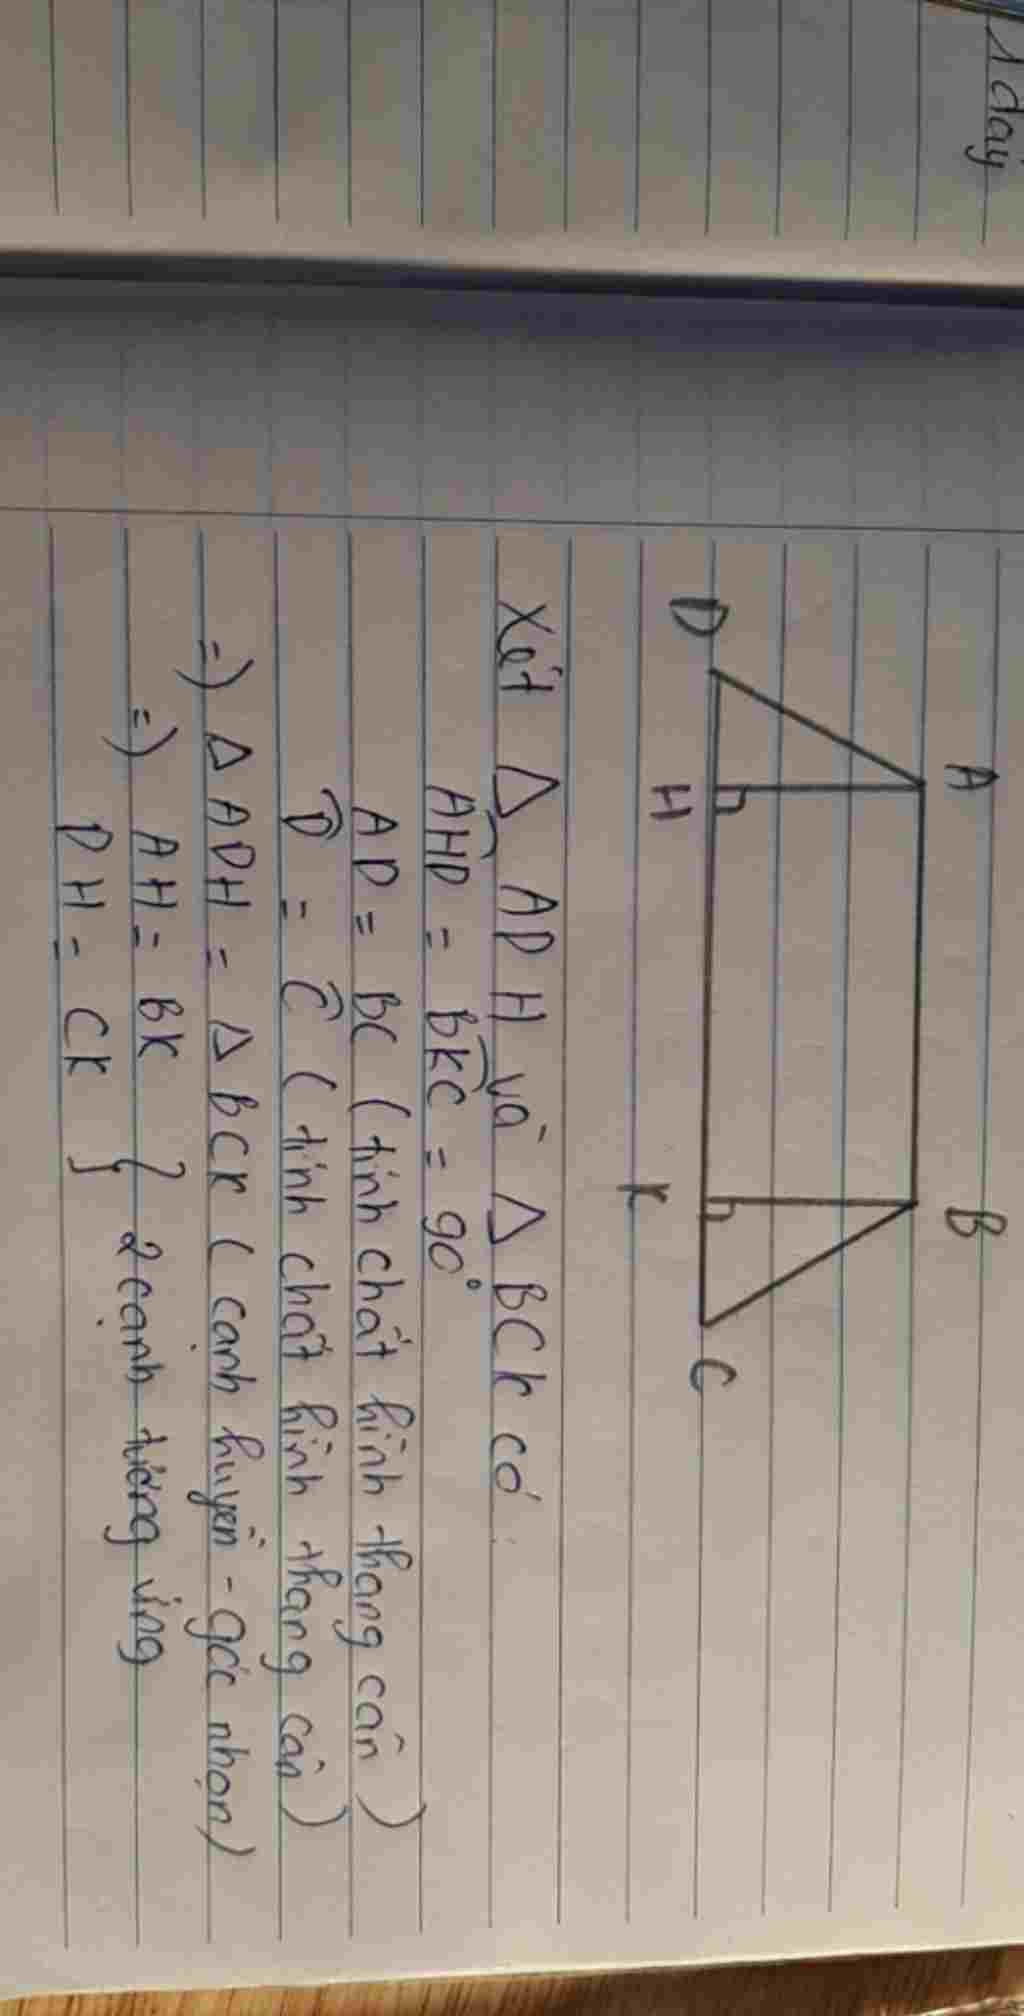 1 day
A B
D H K C
Xét △ ADH và △ BCK có:
AHD = BKC = 90°
AD = BC (tính chất hình thang cân)
D = C (tính chất hình thang cân)
=) △ ADH = △ BCK (cạnh huyền - góc nhọn)
=) AH = BK } 2 cạnh tương ứng
DH = CK